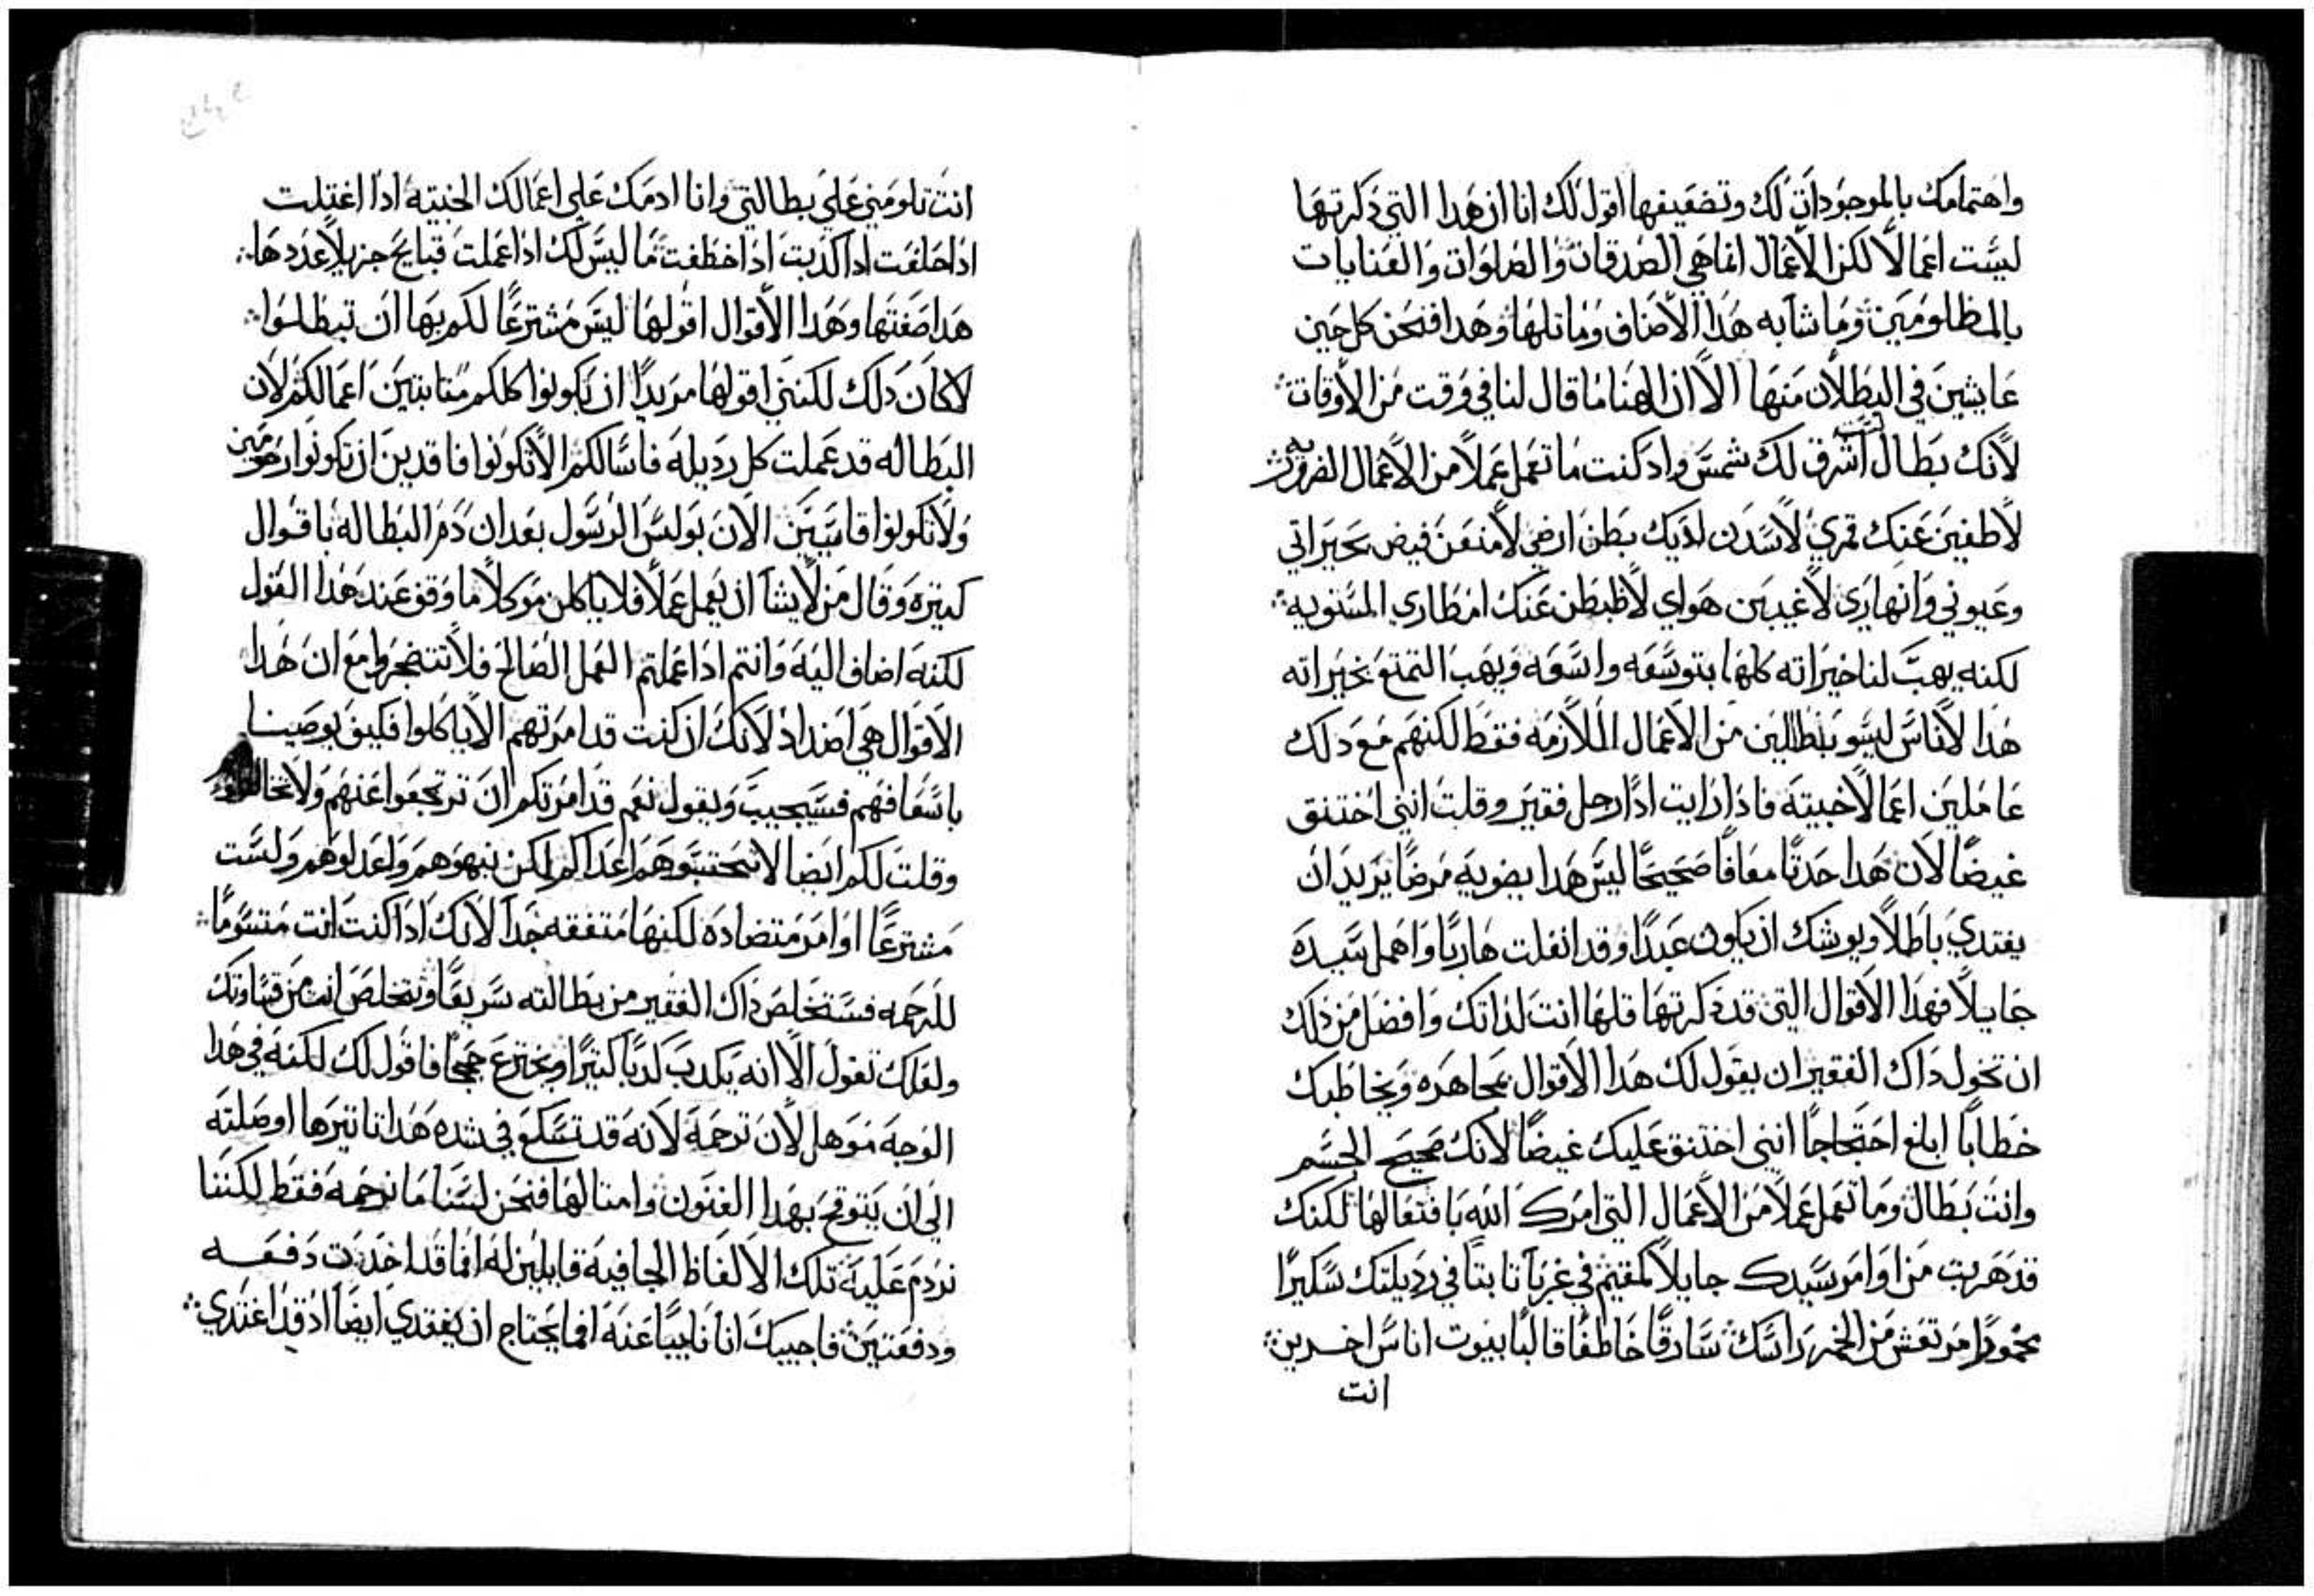 واهتمامك بالموجودات لك وتضعيفها اقول لك انا ان هدا التي دكرتها
ليست اعمالاً لكن الاعمال انما هي الصدقات والصلوات والعنايات
بالمظلومين وما شابه هدا الاصناف وماتلها وهدا فنحن كل حين
عايشين في البطلان منها الا ان الهنا ما قال لنا في وقت من الاوقات
لانك بطال لست اشرق لك شمس واد كنت ما تعمل عملاً من الاعمال الضروريه
لاطفين عنك قمري لاسدن لديك بطن ارضي لامنعن فيض بحيراتي
وعيوني وانهاري لاغيبن هواي لاظبطن عنك امطاري السنويه
لكنه يهب لنا خيراته كلها بتوسعه واسعه ويهب التمتع بخيراته
هدا لاناس ليسو بطالين من الاعمال اللازمه فقط لكنهم مع دلك
عاملين اعمالاً خبيته فادا رايت ادًا رجل فقير وقلت انني اختنق
غيضًا لان هدا حدتًا معافًا صحيحًا ليس هدا بضويه مرضًا يريد ان
يغتدي باطلاً ويوشك ان يكون عبدًا وقد انفلت هاربًا واهمل سيده
جايلاً فهدا الاقوال التي قد دكرتها قلها انت لداتك وافضل من دلك
ان تخول داك الفقير ان يقول لك هدا الاقوال بمجاهره ويخاطبك
خطابًا ابلغ احتجاجًا انني اختنق عليك غيضًا لانك صحيح الجسم
وانت بطال وما تعمل عملاً من الاعمال التي امرك الله بافتعالها لكنك
قد هربت من اوامر سيدك جايلاً كمقيم في غربًا تابتًا في رديلتك سكيرًا
مخمورًا مرتعش من الخمر راسك سارقًا خاطفًا قالبًا بيوت اناس اخرين
انت
انت تلومني علي بطالتي وانا ادمك علي اعمالك الخبيته ادا اغتلت
ادا حلفت ادا كدبت ادا خطفت ما ليس لك ادا عملت قبايح جزيلاً عددها
هدا صفتها وهدا الاقوال اقولها ليس مشترعًا لكم بها ان تبطلوا
لا كان دلك لكنني اقولها مريدًا ان تكونوا كلكم متابتين اعمالكم لان
البطاله قد عملت كل رديله فاسالكم الا تكونوا فاقدين ان تكونوا رحومين
ولا تكونوا قاسيين الان بولس الرسول بعد ان دم البطاله باقوال
كتيره وقال من لا يشا ان يعمل عملاً فلا ياكلن موكلاً ما وقف عند هدا القول
لكنه اضاف اليه وانتم ادا عملتم العمل الصالح فلا تتضجروا مع ان هدا
الاقوال هي اضداد لانك ان كنت قد امرتهم الا ياكلوا فكيف يوصينا
باسعافهم فسيجيب ويقول نعم قد امرتكم ان ترتجعوا عنهم ولا
وقلت لكم ايضا لا تحتسبوهم اعداكم لكن نبهوهم واعدلوهم ولست
مشترعًا اوامر متضاده لكنها متفقه جدا لانك ادا كنت انت متسومًا
للرحمه فستخلص داك الفقير من بطالته سريعًا وتتخلص انت من قساوتك
ولعلك تقول الا انه يكدب كدبًا كتيرًا ويخترع حججًا فاقول لك لكنه في هدا
الوجه موهل لان ترحمه لانه قد تسكع في شده هدا تاتيرها اوصلته
الي ان يتوقح بهدا الفنون وامتالها فنحن لسنا ما نرحمه فقط لكننا
نردم عليه تلك الالفاظ الجافيه قايلين له اما قد اخدت دفعه
ودفعتين فاجيبك انا نايبًا عنه افما يحتاج ان يغتدي ايضا اد قد اغتدي